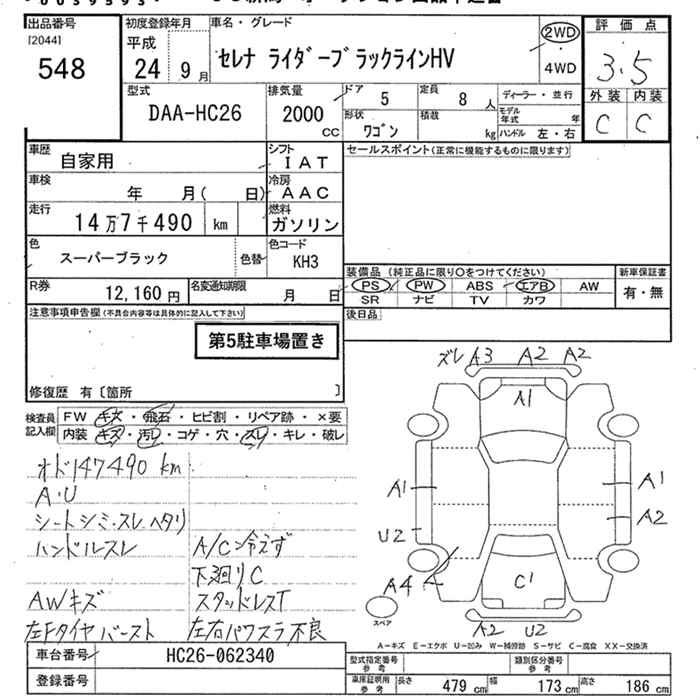 出品番号
[2044]
548
初度登録年月
平成
24 9 月
車名・グレード
セレナ ライダーブラックラインHV
2WD
4WD
評価点
3.5
外装 内装
C C
型式
DAA-HC26
排気量
2000
CC
ドア 5
定員 8 人
ディーラー・並行
モデル年式 年
形状 ワゴン
積載 kg
ハンドル 左・右
車歴 自家用
シフト IAT
セールスポイント(正常に機能するものに限ります)
車検 年 月( 日)
冷房 AAC
走行 14万7千490 km
燃料 ガソリン
色 スーパーブラック
色替
色コード KH3
装備品 (純正品に限り○をつけてください)
新車保証書
PS PW ABS エアB AW
有・無
SR ナビ TV カワ
R券 12,160 円
名変通知期限 月 日
後日品
注意事項申告欄(不具合内容等は具体的に記入して下さい)
第5駐車場置き
修復歴 有〔箇所 〕
検査員記入欄
FW キズ・飛石・ヒビ割・リペア跡・×要
内装 キズ・汚れ・コゲ・穴・スレ・キレ・破レ
オド147490 km
A・U
シートシミ・スレ ヘタリ
ハンドルスレ
A/C冷えず
下廻りC
AWキズ
スタッドレスT
左Fタイヤバースト
左右パワスラ不良
ズレ A3 A2 A2
A1
A1 A1
A2
U2
A4
C1
A2 U2
スペア
A-キズ E-エクボ U-凹み W-補修跡 S-サビ C-腐食 XX-交換済
車台番号 HC26-062340
登録番号
型式指定番号 参考
類別区分番号 参考
車庫証明用 参考
長さ 479 cm
幅 173 cm
高さ 186 cm